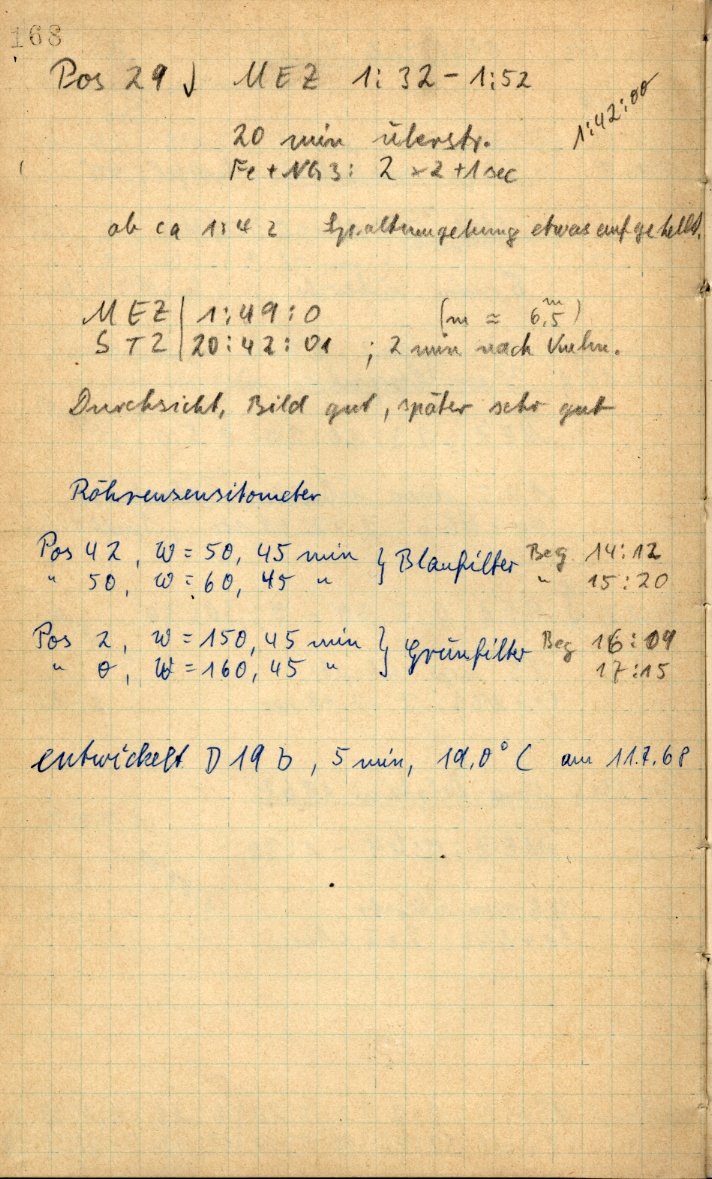 168
Pos 29 ↓ MEZ 1:32 – 1:52
1:42:00
20 min überstr.
Fe + NG3: 2 × 2 + 1 sec
ab ca 1:42 Spaltumgebung etwas aufgehellt.
MEZ | 1:49:0 (m ≈ 6,5ᵐ)
STZ | 20:42:01 ; 2 min nach Kulm.
Durchsicht, Bild gut, später sehr gut
Röhrensensitometer
Pos 42, W = 50, 45 min } Blaufilter Beg 14:12
" 50, W = 60, 45 " " 15:20
Pos 2, W = 150, 45 min } Grünfilter Beg 16:09
" 0, W = 160, 45 " 17:15
entwickelt D 19 b, 5 min, 19,0° C am 11.7.68